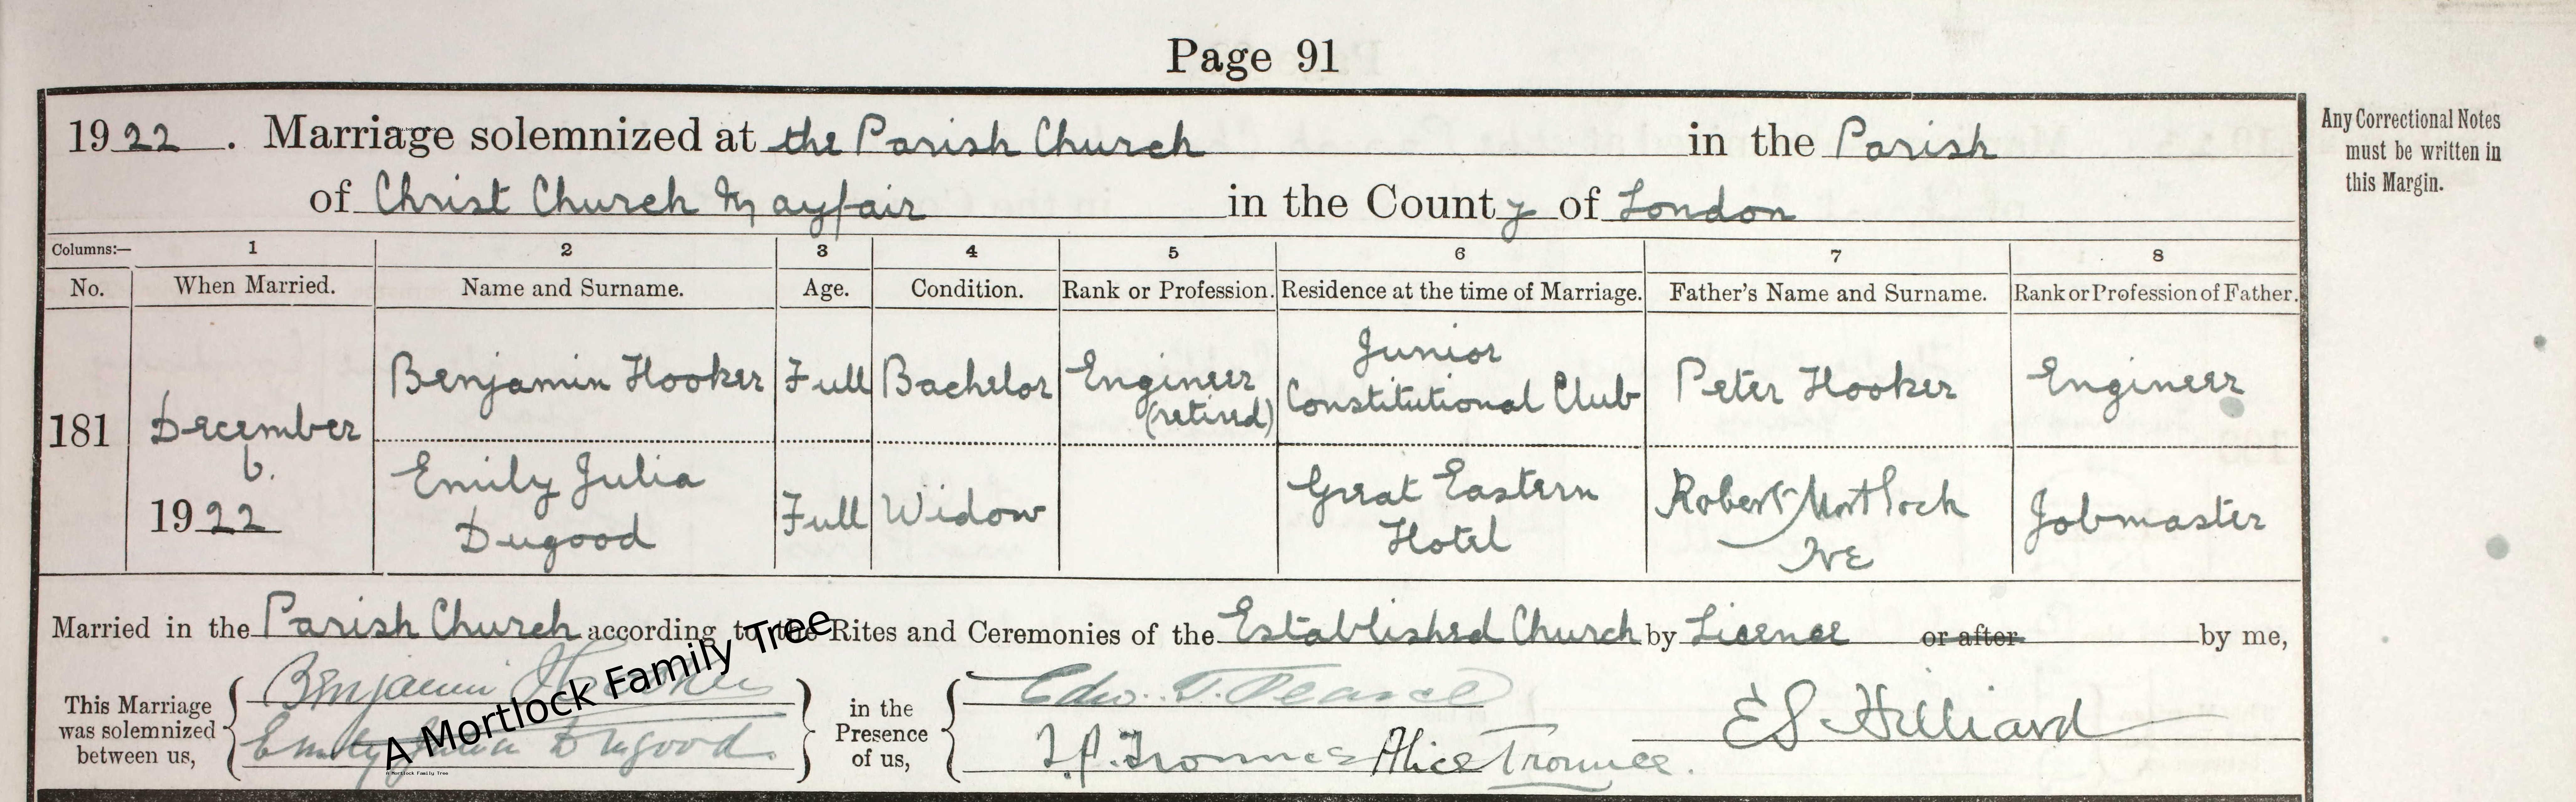 Page 91
1922. Marriage solemnized at the Parish Church in the Parish
of Christ Church Mayfair in the County of London
Any Correctional Notes
must be written in
this Margin.
Columns:— 1 2 3 4 5 6 7 8
No. When Married. Name and Surname. Age. Condition. Rank or Profession. Residence at the time of Marriage. Father's Name and Surname. Rank or Profession of Father.
181 December 6. 1922
Benjamin Hooker Full Bachelor Engineer (retired) Junior Constitutional Club Peter Hooker Engineer
Emily Julia Dugood Full Widow Great Eastern Hotel Robert Mortlock Jobmaster
Married in the Parish Church according to the Rites and Ceremonies of the Established Church by Licence or after by me,
This Marriage
was solemnized
between us,
Benjamin Hooker
Emily Julia Dugood
in the
Presence
of us,
Edw. T. Pearce
Alice Trounce.
E S Hilliard
A Mortlock Family Tree
A Mortlock Family Tree